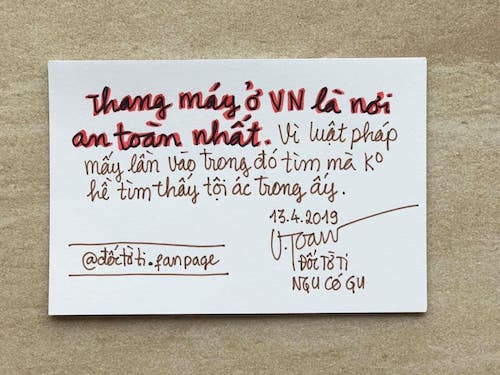 Thang máy ở VN là nơi
an toàn nhất. Vì luật pháp
mấy lần vào trong đó tìm mà Kº
hề tìm thấy tội ác trong ấy.
13.4.2019
@đốctờti.fanpage
ĐỐC TỜ TI
NGU CÓ GU